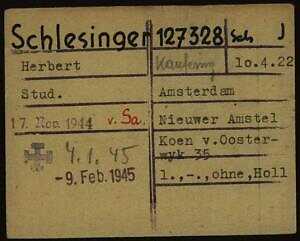 Schlesinger 127328 Sch J
Herbert Kaufering 10.4.22
Stud. Amsterdam
17. Nov. 1944 v. Sa. Nieuwer Amstel
4.1.45 Koen v.Ooster-
wyk 35
-9. Feb. 1945 l.,-.,ohne,Holl